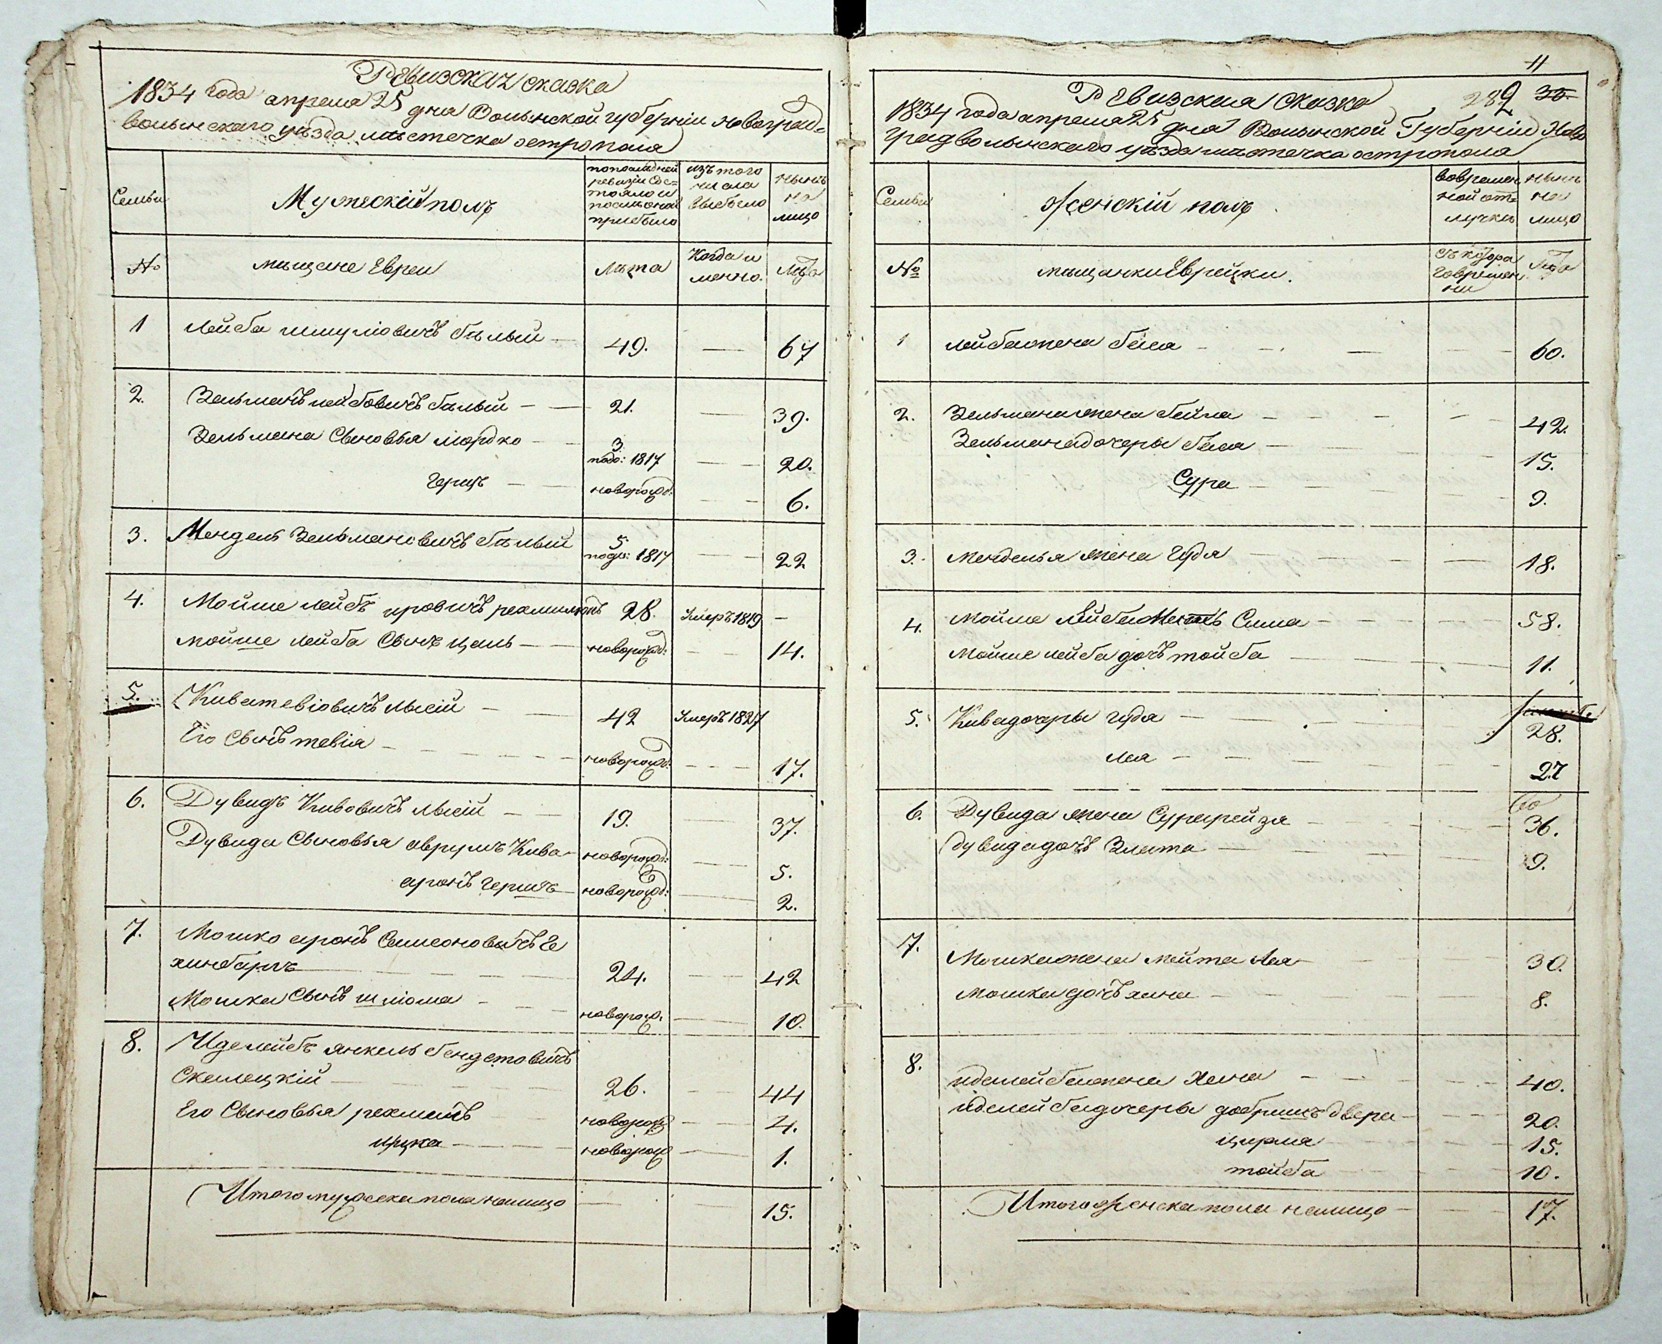 Ревизская сказка
1834 года апреля 25 дня Волынской губернiи Новоград=
волынскаго уѣзда мѣстечка острополя
Семьи
Мужескiй полъ
по последней ревизiи состояло и после оной прибыло
изъ того числа выбыло
нынѣ на лицо
№
мѣщане Евреи
Лѣта
Когда и менно.
Лѣта
1 Лейба шмулiовичъ бѣлый — 49. — 67
2. Зельманъ лейбовичъ бѣлый — 21. — 39.
Зельмана Сыновья мордко — 3 подо: 1817 — 20.
герщъ — новорожд: — 6.
3. Мендель Зельмановичъ бѣлый 5 подо: 1817 — 22
4. Мойше лейбъ 28. Умеръ 1819 —
мойше лейба Сынъ — новорожд: — 14.
5. Кива тевiовичъ лысiй — 42 Умеръ 1827
Его Сынъ тевiя — новорожд: — 17.
6. Дувидъ Кивовичъ лысiй — 19. — 37.
Дувида Сыновья аврумъ Кива — новорожд: — 5.
аронъ гершъ — новорожд: — 2.
7. Мошко аронъ
24. — 42
Мошка Сынъ шлiома — новорож. — 10.
8. Иделейбъ янкель бендетовичъ
Скалецкiй — 26. — 44
Его Сыновья — новорож — 4.
ицка — новорож — 1.
Итого мужеска пола налицо — 15.
11
282 35.
Ревизская Сказка
1834 года апреля 25 дня Волынской Губернiи Ново
градволынскаго уѣзда мѣстечка острополя
Семьи
Женскiй полъ
во времен ной от лучки
нынѣ на лицо
№
мѣщанки Еврейки.
Съ котора го времен ни
Лѣта
1 лейба жена бейла — 60.
2. Зельмана жена бейла — 42.
Зельмана дочеры бейла — 15.
Сура — 9.
3. менделья жена гудя — 18.
4. мойше лейба Сима — 58.
мойше лейба дочъ тойба — 11.
5. Кива дочеры гудя — 28.
лея — 27
6. Дувида жена Сурарейзя — 36.
дувида дочъ Злата — 9.
7. Мошка жена лея — 30.
мошка дочъ хана — 8.
8. иделейба жена Хана — 40.
иделейба дочеры двера — 20.
цирля 15.
тойба — 10.
Итого женска пола налицо — 17.